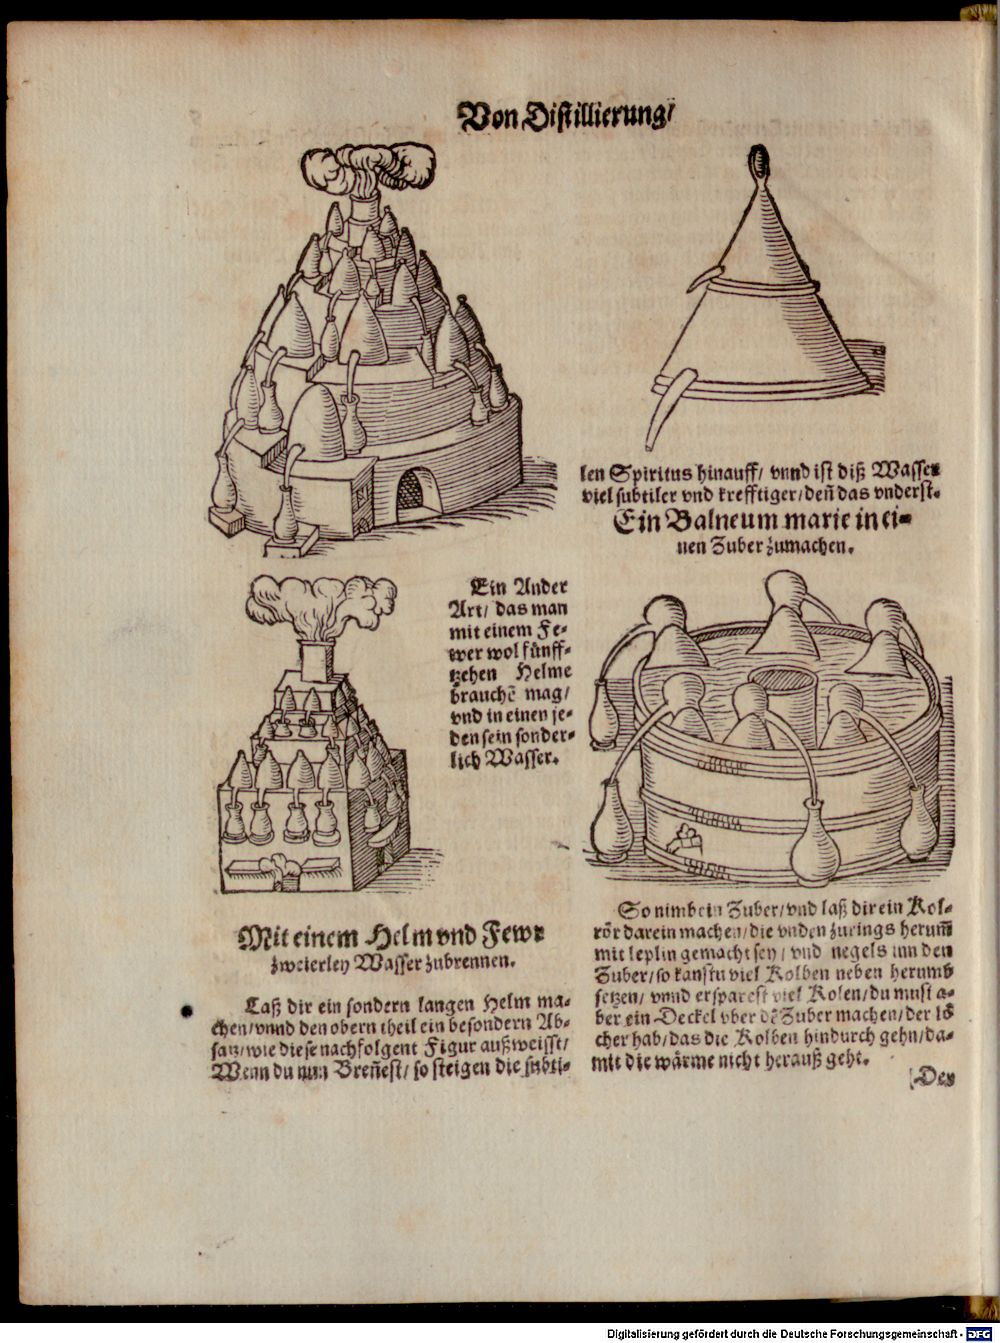 Von Distillierung/
Ein Ander
Art/ das man
mit einem Fe-
wer wol fünff-
tzehen Helme
brauchē mag/
vnd in einen je-
den sein sonder-
lich Wasser.
Mit einem Helm vnd Fewr
zweierley Wasser zubrennen.
Laß dir ein sondern langen Helm ma-
chen/vnnd den obern theil ein besondern Ab-
satz/wie diese nachfolgent Figur außweisst/
Wenn du nun Breñest/ so steigen die subti-
len Spiritus hinauff/ vnnd ist diß Wasser
viel subtiler vnd krefftiger/deñ das vnderst.
Ein Balneum marie in ei-
nen Zuber zumachen.
So nimb ein Zuber/vnd laß dir ein Kol-
rör darein machen/die vnden zurings herum̃
mit leplin gemacht sey/ vnd negels inn den
Zuber/so kanstu viel Kolben neben herumb
setzen/ vnnd ersparest viel Kolen/du must a-
ber ein Deckel vber dē Zuber machen/der lö
cher hab/das die Kolben hindurch gehn/da-
mit die wärme nicht herauß geht.
Der
Digitalisierung gefördert durch die Deutsche Forschungsgemeinschaft - DFG